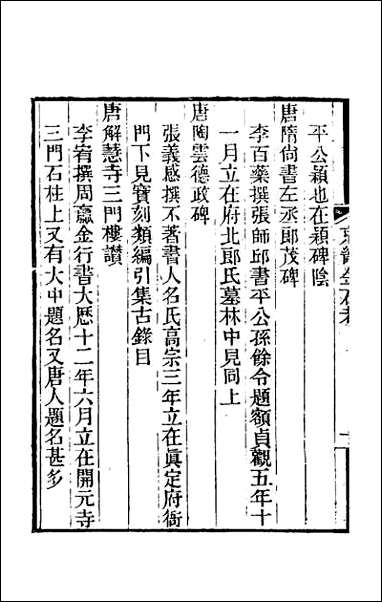 平公穎也在穎碑陰
唐隋尚書左丞郎茂碑
李百藥撰張師邱書平公孫餘令題額貞觀五年十
一月立在府北郎氏墓林中見同上
唐陶雲德政碑
張義感撰不著書人名氏高宗三年立在眞定府衙
門下見寶刻類編引集古錄目
唐解慧寺三門樓讚
李宥撰周鼒金行書大歷十二年六月立在開元寺
三門石柱上又有大中題名又唐人題名甚多